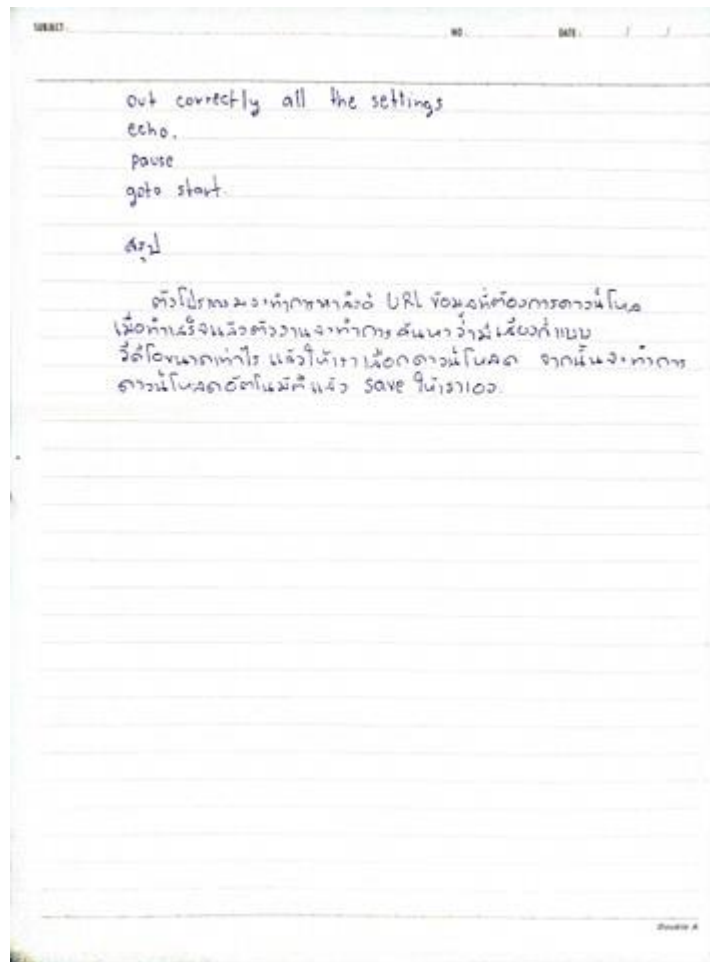 SUBJECT :
NO :
DATE : / /
out correctly all the settings
echo.
pause
goto start.
สรุป
ตัวโปรแกรมจะทำการหา URL ข้อมูลที่ต้องการดาวน์โหลด
เมื่อทำเสร็จแล้วตัวงานจะทำการค้นหาว่ามีเสียงกี่แบบ
วีดีโอขนาดเท่าไร แล้วให้เราเลือกดาวน์โหลด จากนั้นจะทำการ
ดาวน์โหลดอัตโนมัติแล้ว save ให้เราเอง
Double A